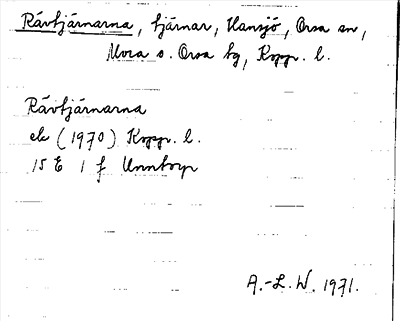 Rävtjärnarna, tjärnar, Hansjö, Orsa sn,
Mora o. Orsa tg, Kopp. l.
Rävtjärnarna
ek (1970) Kopp. l.
15 E 1 f Unntorp
A.-L. W. 1971.